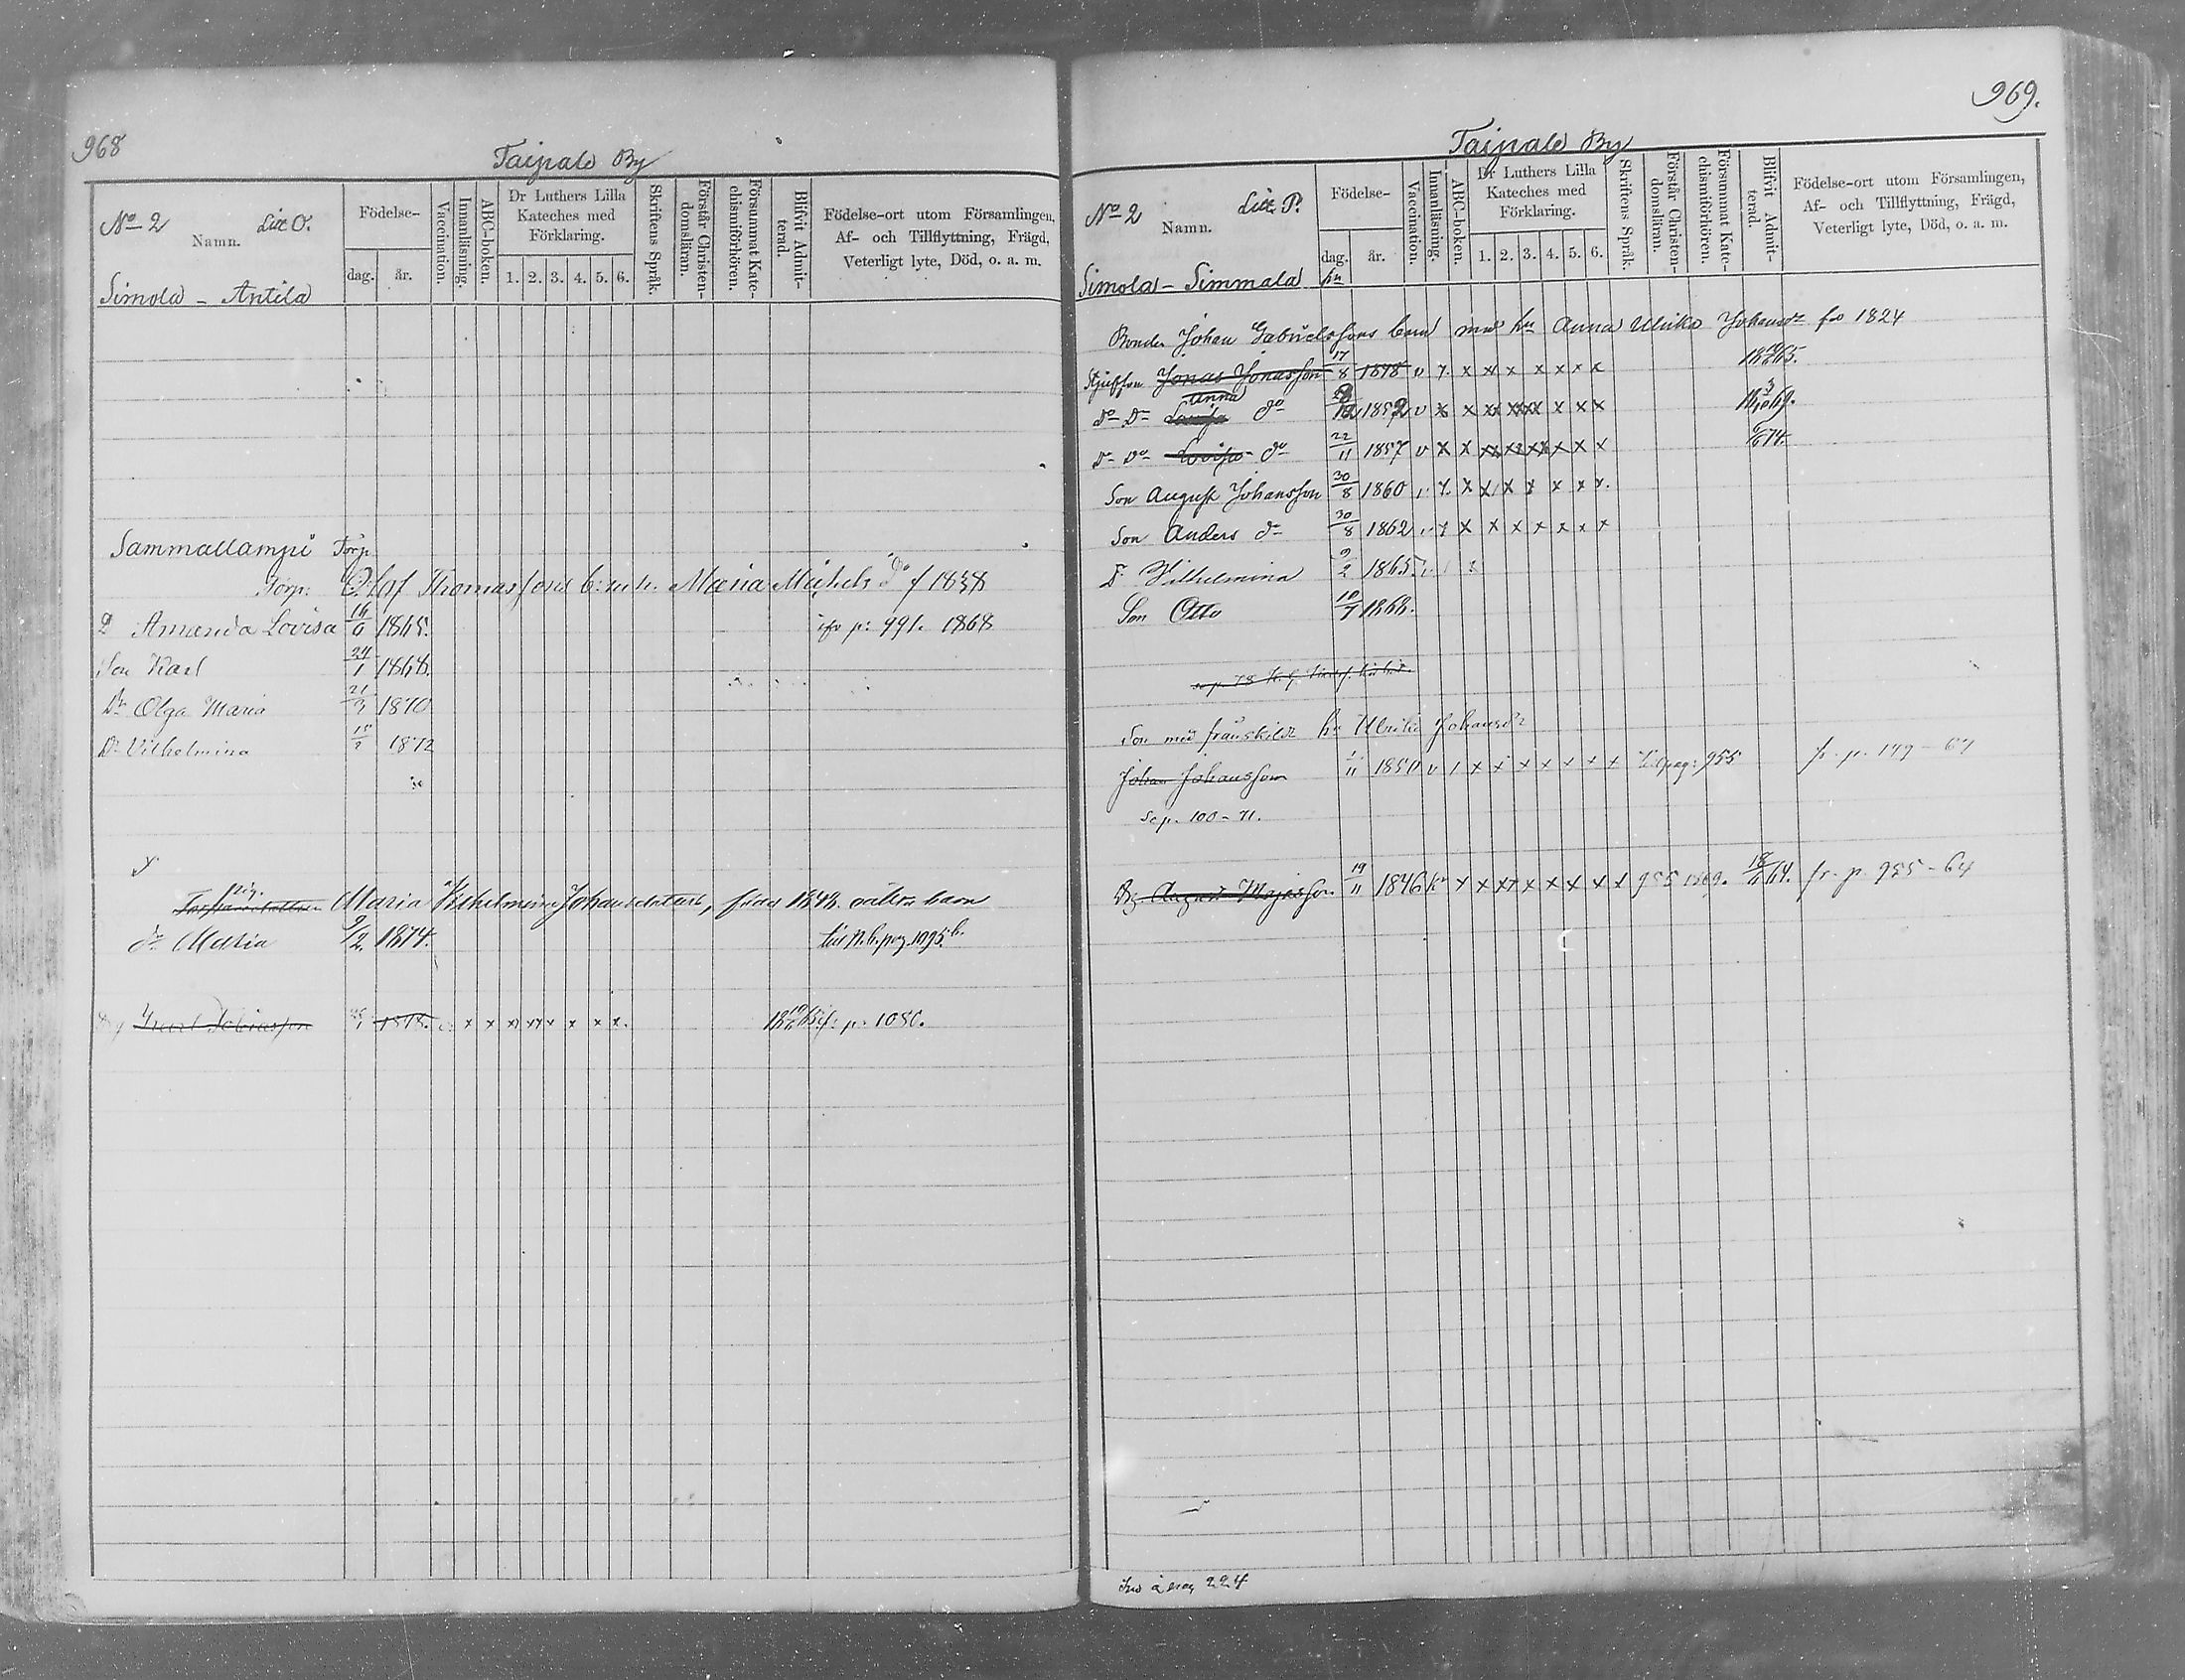 968
Taipale By
No 2 Litt O.
Namn.
Födelse-
dag. år.
Vaccination.
Innanläsning.
ABC-boken.
Dr Luthers Lilla Kateches med Förklaring.
1. 2. 3. 4. 5. 6.
Skriftens Språk.
Förstår Christendomsläran.
Försummat Katechismiförhören.
Blifvit Admitterad.
Födelse-ort utom Församlingen,
Af- och Tillflyttning, Frägd,
Veterligt lyte, Död, o. a. m.
Simola - Antila
Sammallampi Torp
Torp: Olof Thomassons b: m. h. Maria Michels do f 1838
D Amanda Lovisa 16/6 1865. ifr p: 991. 1868
Son Karl 24/1 1868.
Dr Olga Maria 21/3 1870
Dr Vilhelmina 1872
pig. Maria Vilhelmina Johansdotters, född 1848. oäkta barn
dr Maria 9/2 1874. till N. b. pag. 1095.b.
1878. x x x x x x x x p. 1080.
969.
Taipale By
No 2 Litt P.
Namn.
Födelse-
dag. år.
Vaccination.
Innanläsning.
ABC-boken.
Dr Luthers Lilla Kateches med Förklaring.
1. 2. 3. 4. 5. 6.
Skriftens Språk.
Förstår Christendomsläran.
Försummat Katechismiförhören.
Blifvit Admitterad.
Födelse-ort utom Församlingen,
Af- och Tillflyttning, Frägd,
Veterligt lyte, Död, o. a. m.
Simola - Simmala hn
Bonden Johan Gabrielssons barn med hu Anna Ulrika Johansdr fö 1824
Styfson Jonas Jonasson 17/8 1848 v x x x x x x x x
Do Dr Anna do 1852 v x x x x x x x x
Dr Do Lovisa do 22/11 1857 v x x x x x x x x 74.
Son August Johansson 30/8 1860 x x x x x x x x
Son Anders do 30/8 1862 x x x x x x x x
D. Vilhelmina 9/2 1865
Son Otto 10/7 1868.
Son med frånskild hu Ulrika Johansdr
Johan Johansson 11 1850 v x x x x x x x x pag: 955 fr. p. 149 - 67
Se p. 100 - 71.
Dg August Majasson 19/11 1846 x x x x x x x x 955 1869. 64. fr. p. 955 - 64
224